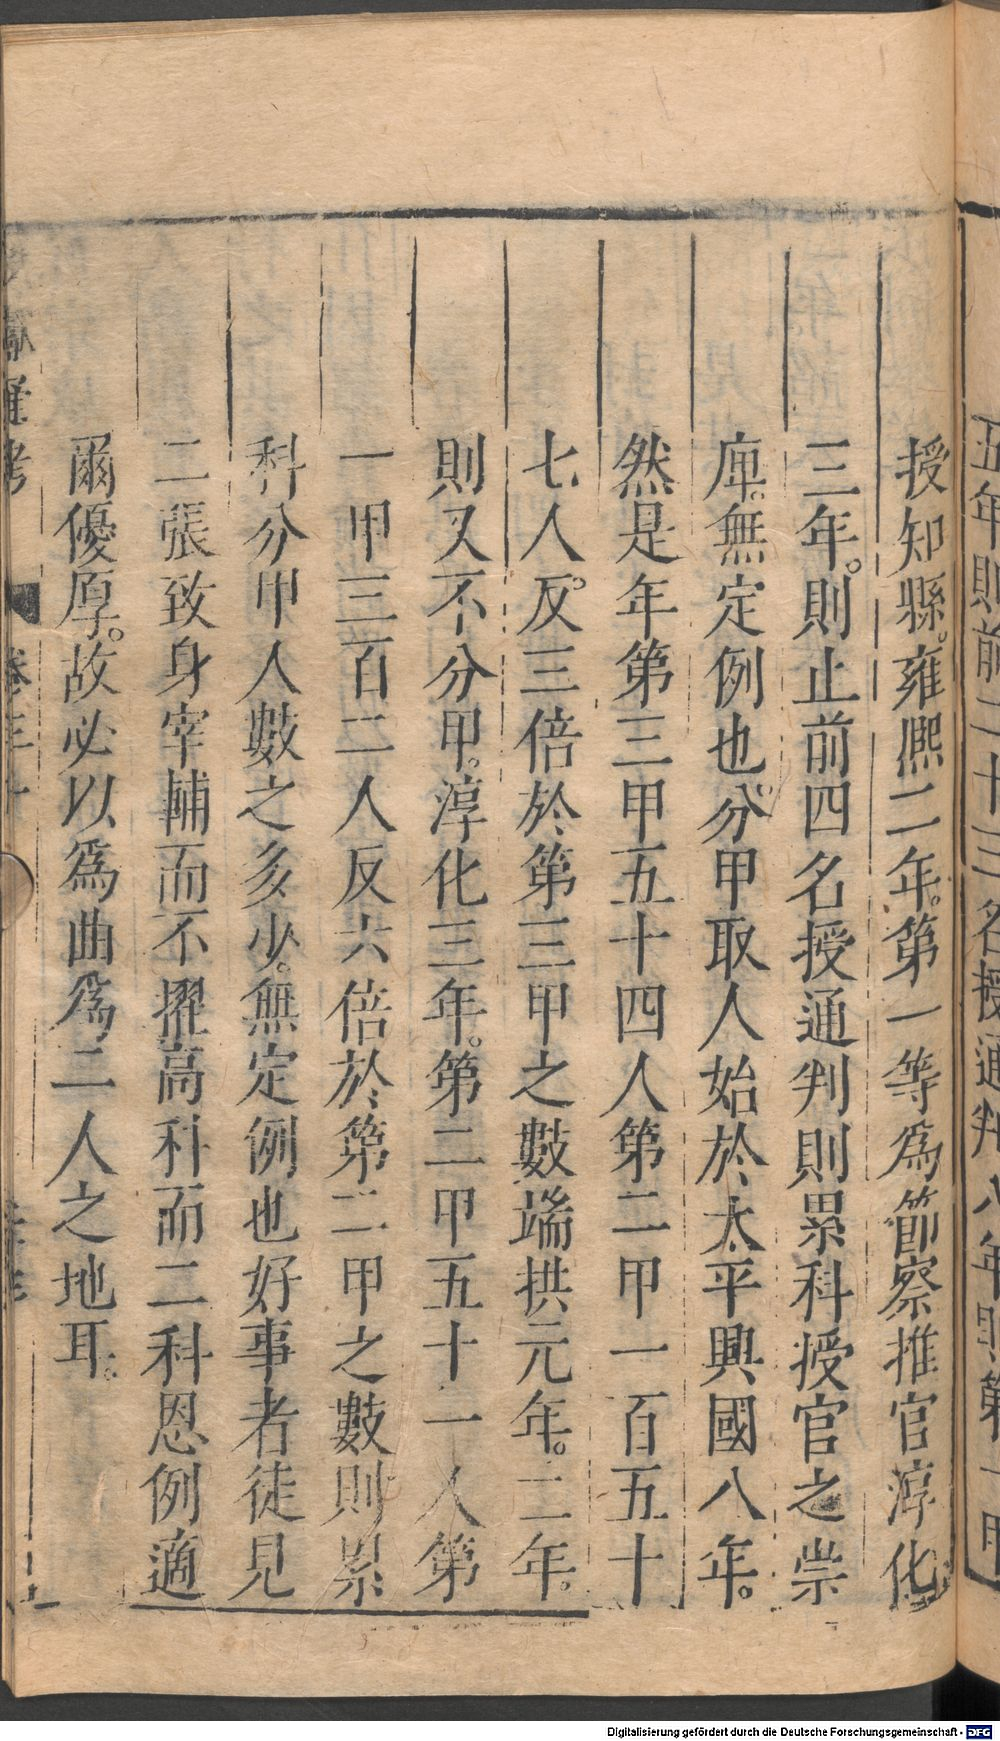 五年則前二十三名授通判八年則第一甲
授知縣。雍熙二年。第一等爲節察推官淳化
三年。則止前四名授通判則累科授官之崇
庳。無定例也。分甲取人始於太平興國八年。
然是年第三甲五十四人第二甲一百五十
七人。反三倍於第三甲之數端拱元年。二年。
則又不分甲。淳化三年。第二甲五十一人第
一甲三百二人反六倍於第二甲之數則累
科分甲人數之多少。無定例也好事者徒見
二張致身宰輔而不擢高科而二科恩例適
爾優厚。故必以爲曲爲二人之地耳。
獻通考 卷三十
Digitalisierung gefördert durch die Deutsche Forschungsgemeinschaft - DFG